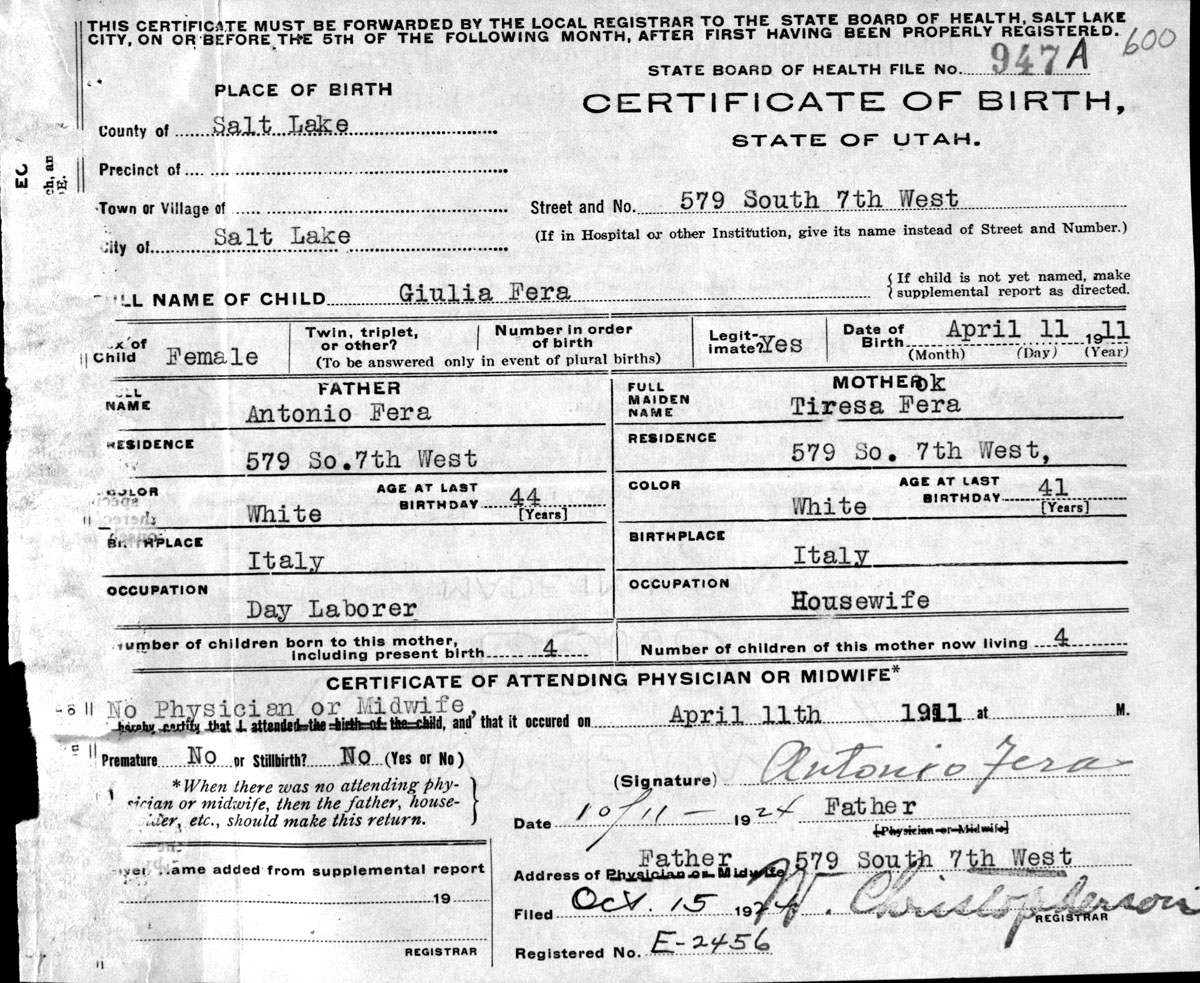 THIS CERTIFICATE MUST BE FORWARDED BY THE LOCAL REGISTRAR TO THE STATE BOARD OF HEALTH, SALT LAKE
CITY, ON OR BEFORE THE 5TH OF THE FOLLOWING MONTH, AFTER FIRST HAVING BEEN PROPERLY REGISTERED.
600
STATE BOARD OF HEALTH FILE No. 947 A
PLACE OF BIRTH
CERTIFICATE OF BIRTH,
County of Salt Lake
STATE OF UTAH.
Precinct of
Town or Village of
Street and No. 579 South 7th West
City of Salt Lake
(If in Hospital or other Institution, give its name instead of Street and Number.)
NAME OF CHILD Giulia Fera
{If child is not yet named, make
supplemental report as directed.
of
Child Female
Twin, triplet,
or other?
Number in order
of birth
(To be answered only in event of plural births)
Legit-
imate? Yes
Date of
Birth April 11 1911
(Month) (Day) (Year)
FATHER
NAME
Antonio Fera
MOTHER ok
FULL
MAIDEN
NAME
Tiresa Fera
RESIDENCE
579 So.7th West
RESIDENCE
579 So. 7th West,
COLOR
White
AGE AT LAST
BIRTHDAY 44
[Years]
COLOR
White
AGE AT LAST
BIRTHDAY 41
[Years]
BIRTHPLACE
Italy
BIRTHPLACE
Italy
OCCUPATION
Day Laborer
OCCUPATION
Housewife
Number of children born to this mother,
including present birth 4
Number of children of this mother now living 4
CERTIFICATE OF ATTENDING PHYSICIAN OR MIDWIFE*
No Physician or Midwife,
hereby certify that I attended the birth of the child, and that it occured on April 11th 1911 at M.
Premature No or Stillbirth? No (Yes or No)
(Signature) Antonio Fera
*When there was no attending phy-
sician or midwife, then the father, house-
etc., should make this return.
Date 10/11- 1924 Father
[Physician or Midwife]
Father 579 South 7th West
Address of Physician or Midwife
Name added from supplemental report
19
REGISTRAR
Filed Oct. 15 1924 W. Christopherson
REGISTRAR
Registered No. E-2456